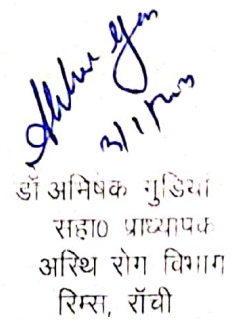 डॉ अभिषेक गुडिया
सहा० प्राध्यापक
अस्थि रोग विभाग
रिम्स, राँची